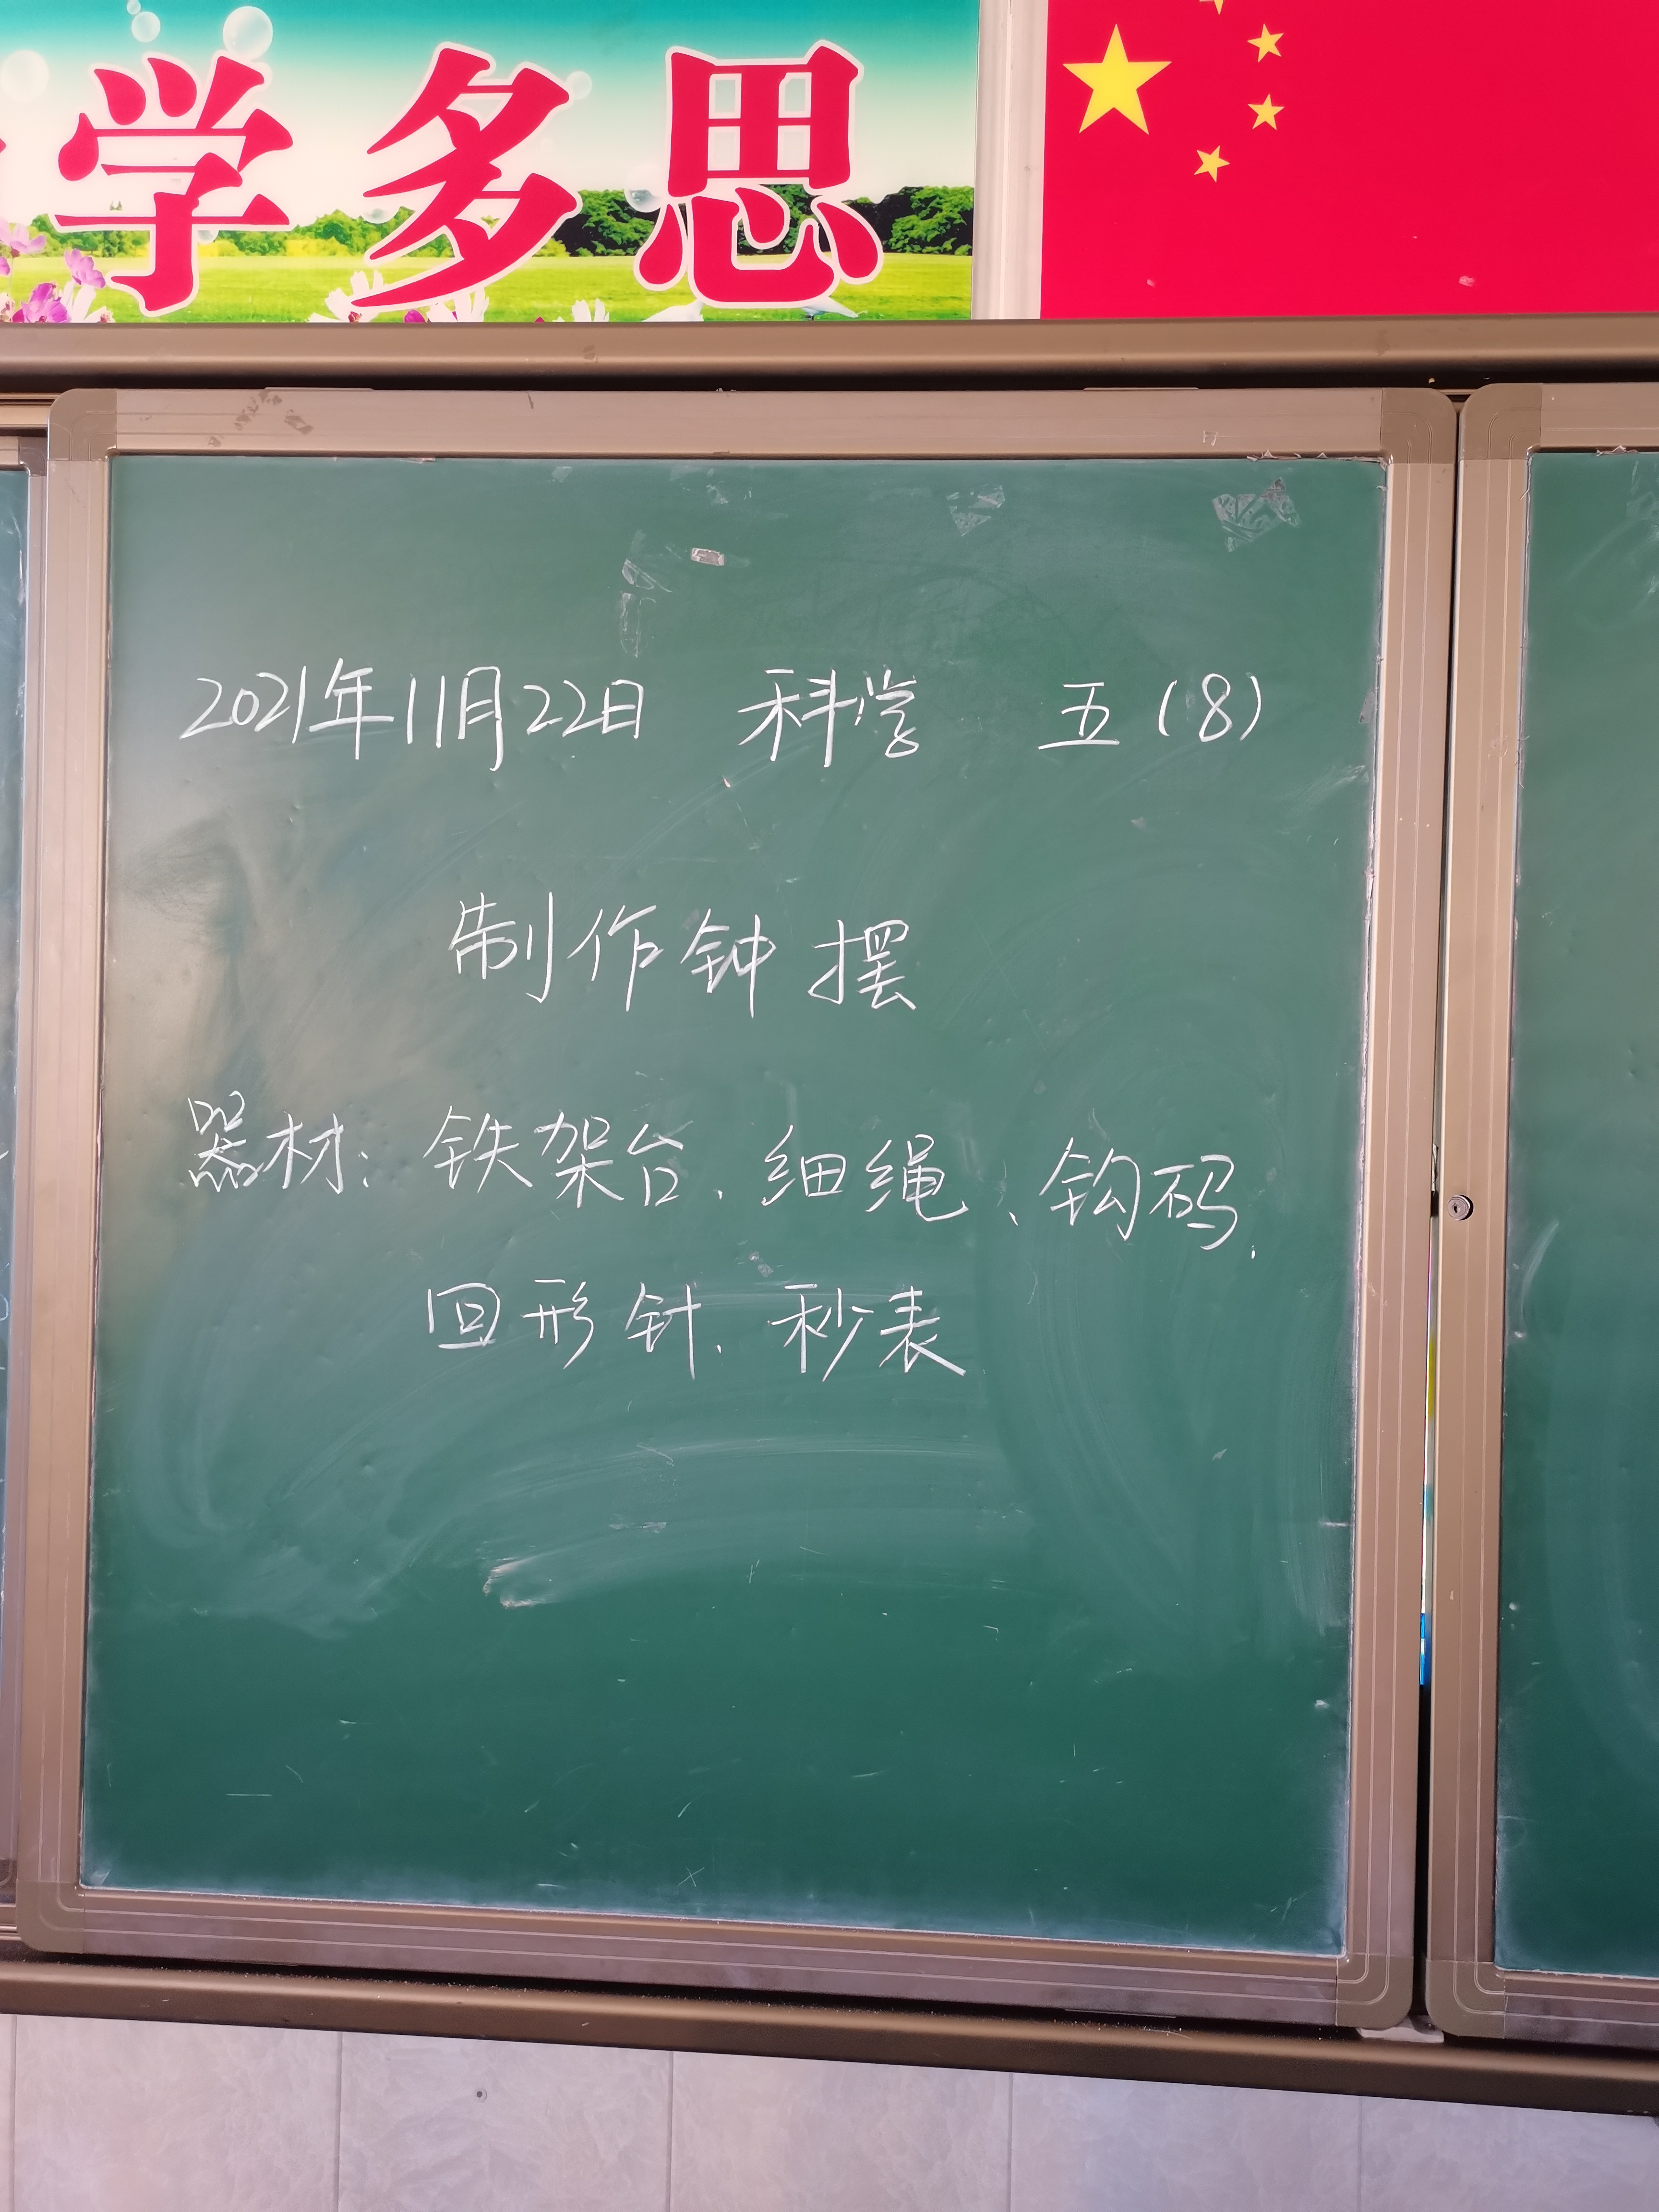 学多思
2021年11月22日 科学 五(8)
制作钟摆
器材：铁架台、细绳、钩码、
回形针、秒表